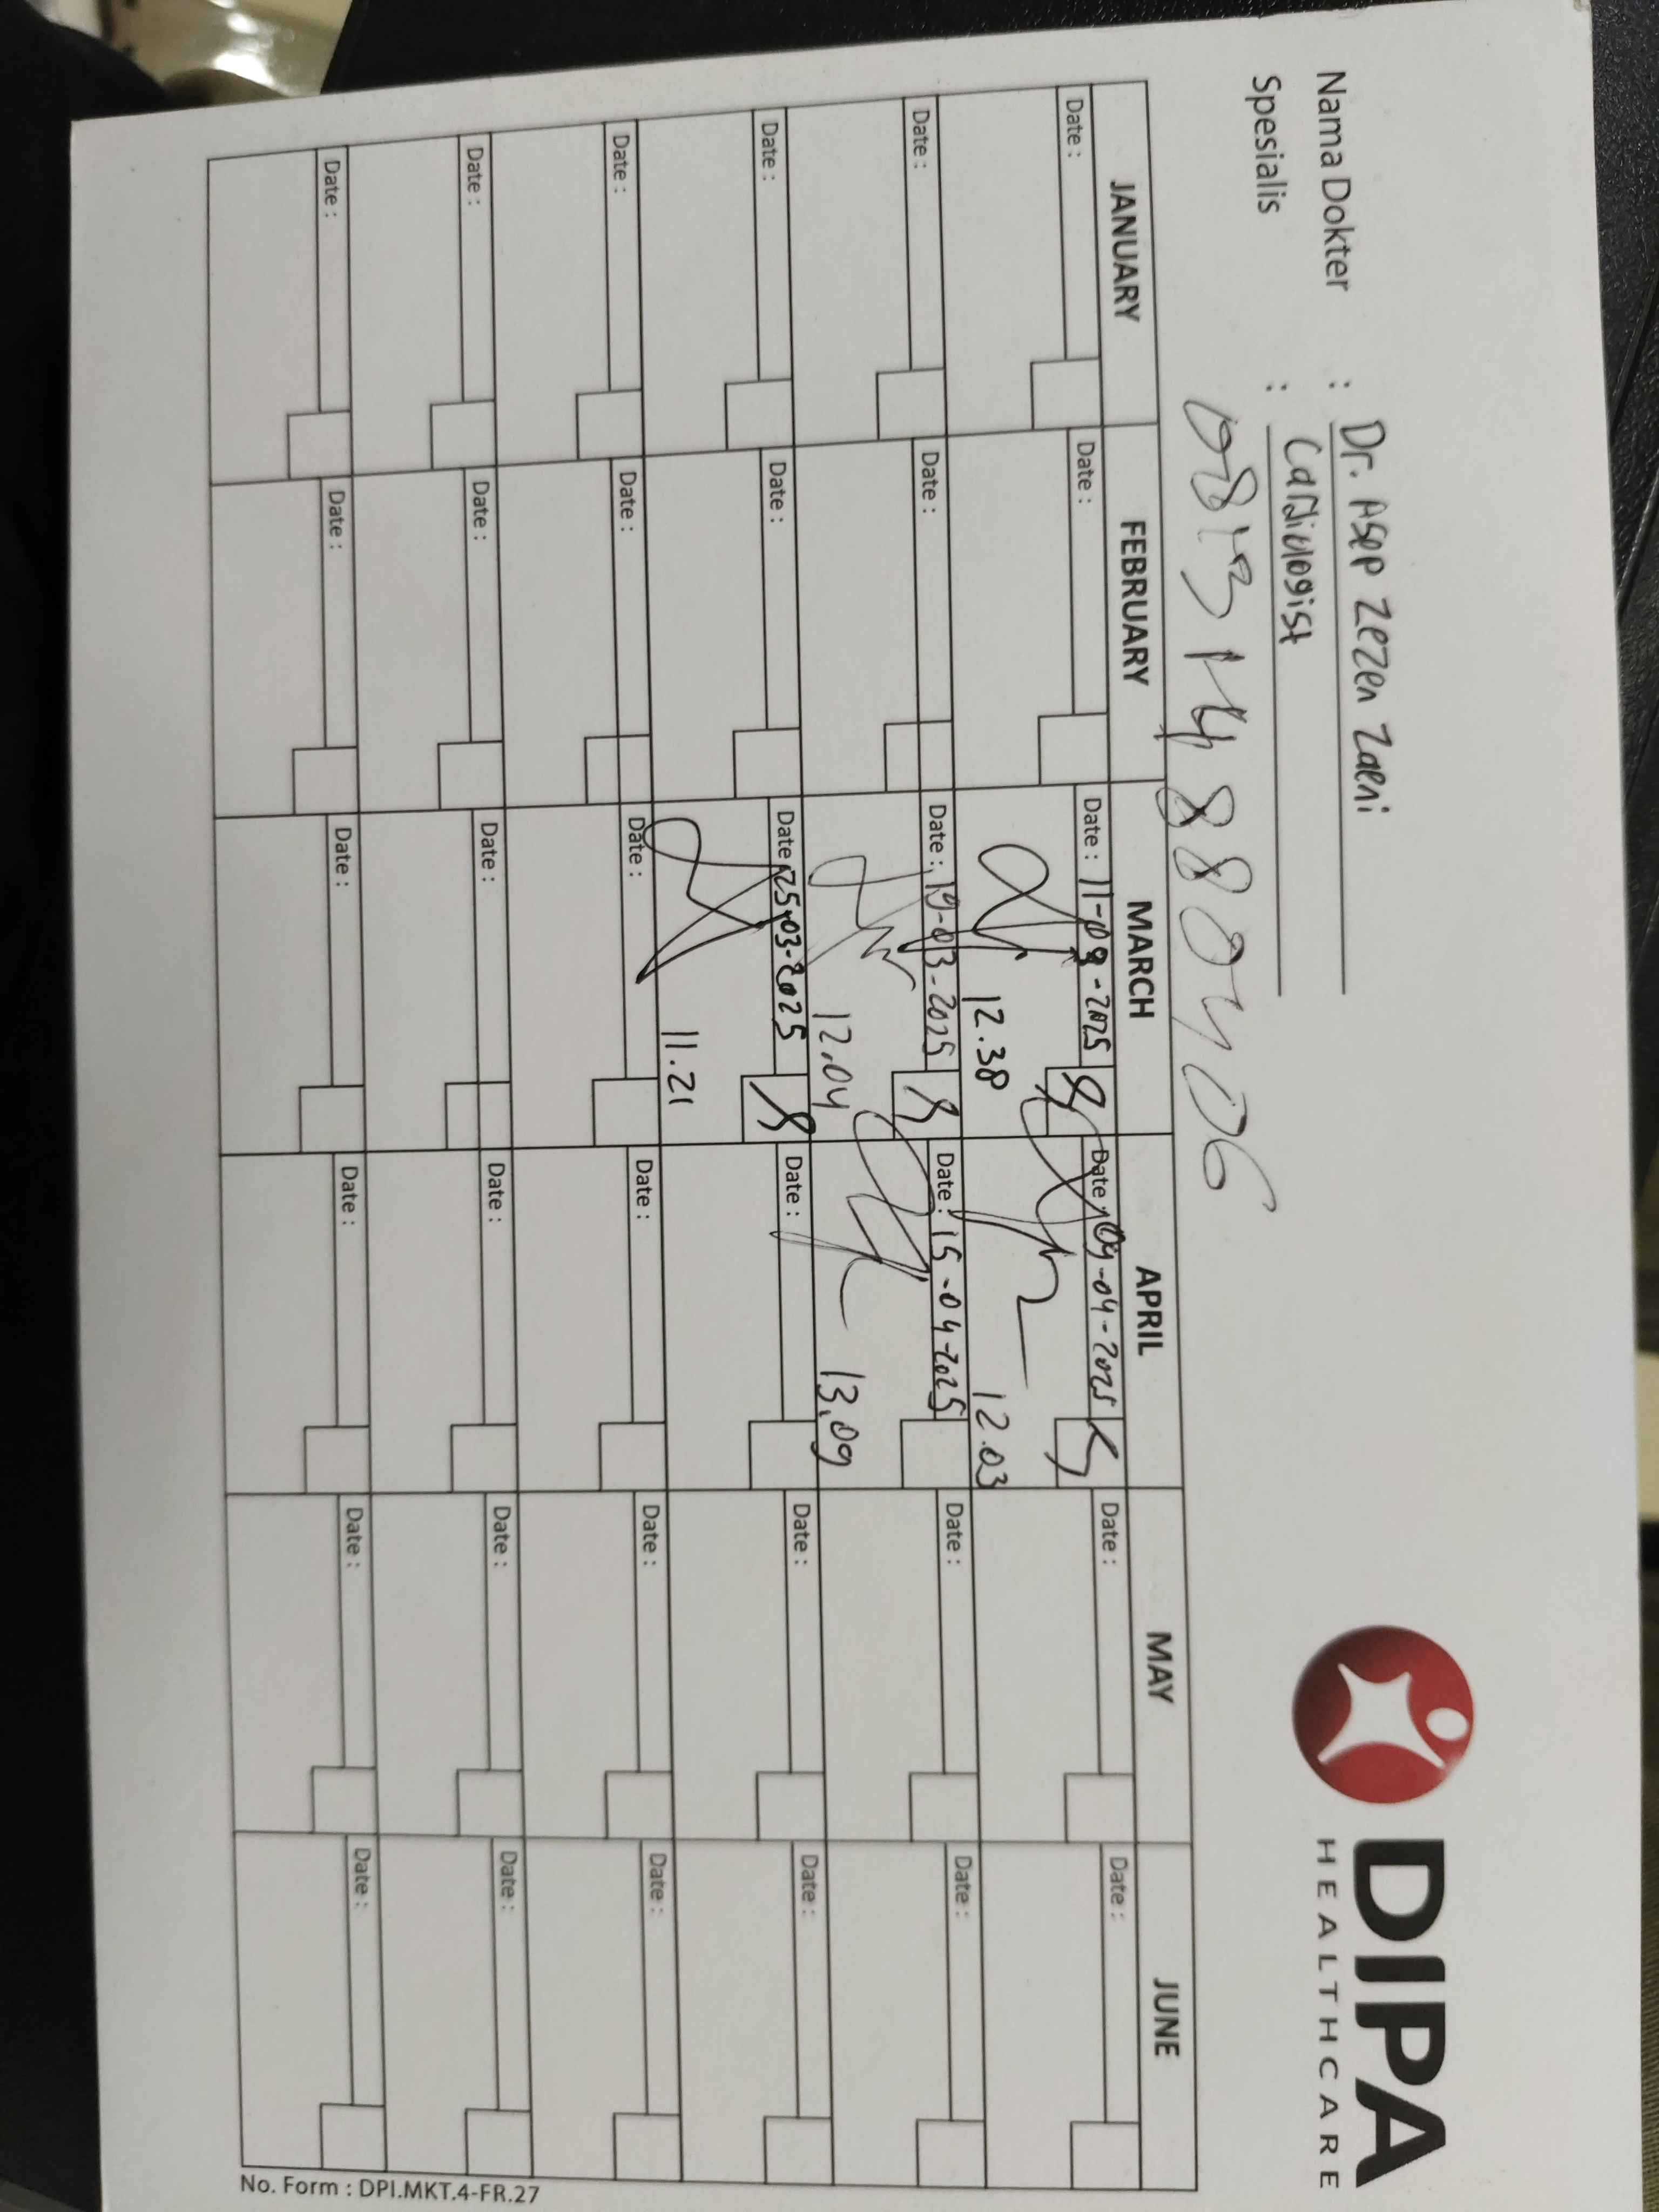 Nama Dokter : Dr. Asep Zezen Zaeni
Spesialis : Cardiologist
DIPA
HEALTHCARE
JANUARY FEBRUARY MARCH APRIL MAY JUNE
Date : Date : Date : 11-03-2025 Date : 09-04-2025 Date : Date :
12.38 12.03
Date : Date : Date : 19-03-2025 Date : 15-04-2025 Date : Date :
12.04 13.09
Date : Date : Date : 25-03-2025 Date : Date : Date :
11.21
Date : Date : Date : Date : Date : Date :
Date : Date : Date : Date : Date : Date :
Date : Date : Date : Date : Date : Date :
No. Form : DPI.MKT.4-FR.27